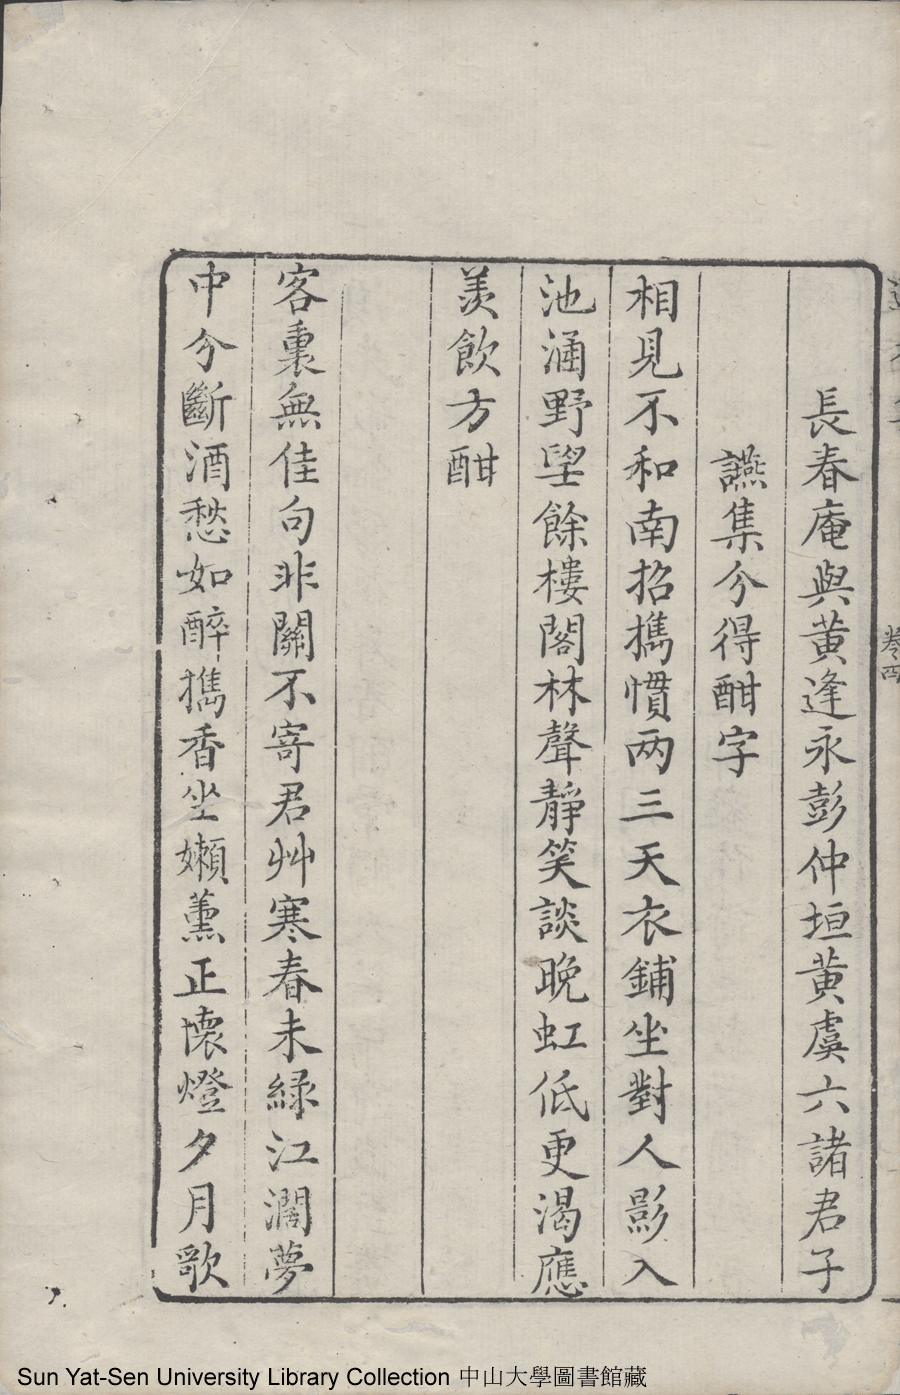 長春庵與黄逢永彭仲垣黄虞六諸君子
讌集分得酣字
相見不和南招攜慣两三天衣鋪坐對人影入
池涵野望餘樓閣林聲靜笑談晚虹低更渴應
羡飲方酣
客裏無佳句非關不寄君艸寒春未緑江濶夢
中分斷酒愁如醉攜香坐嬾薰正懷燈夕月歌
卷四
Sun Yat-Sen University Library Collection 中山大學圖書館藏